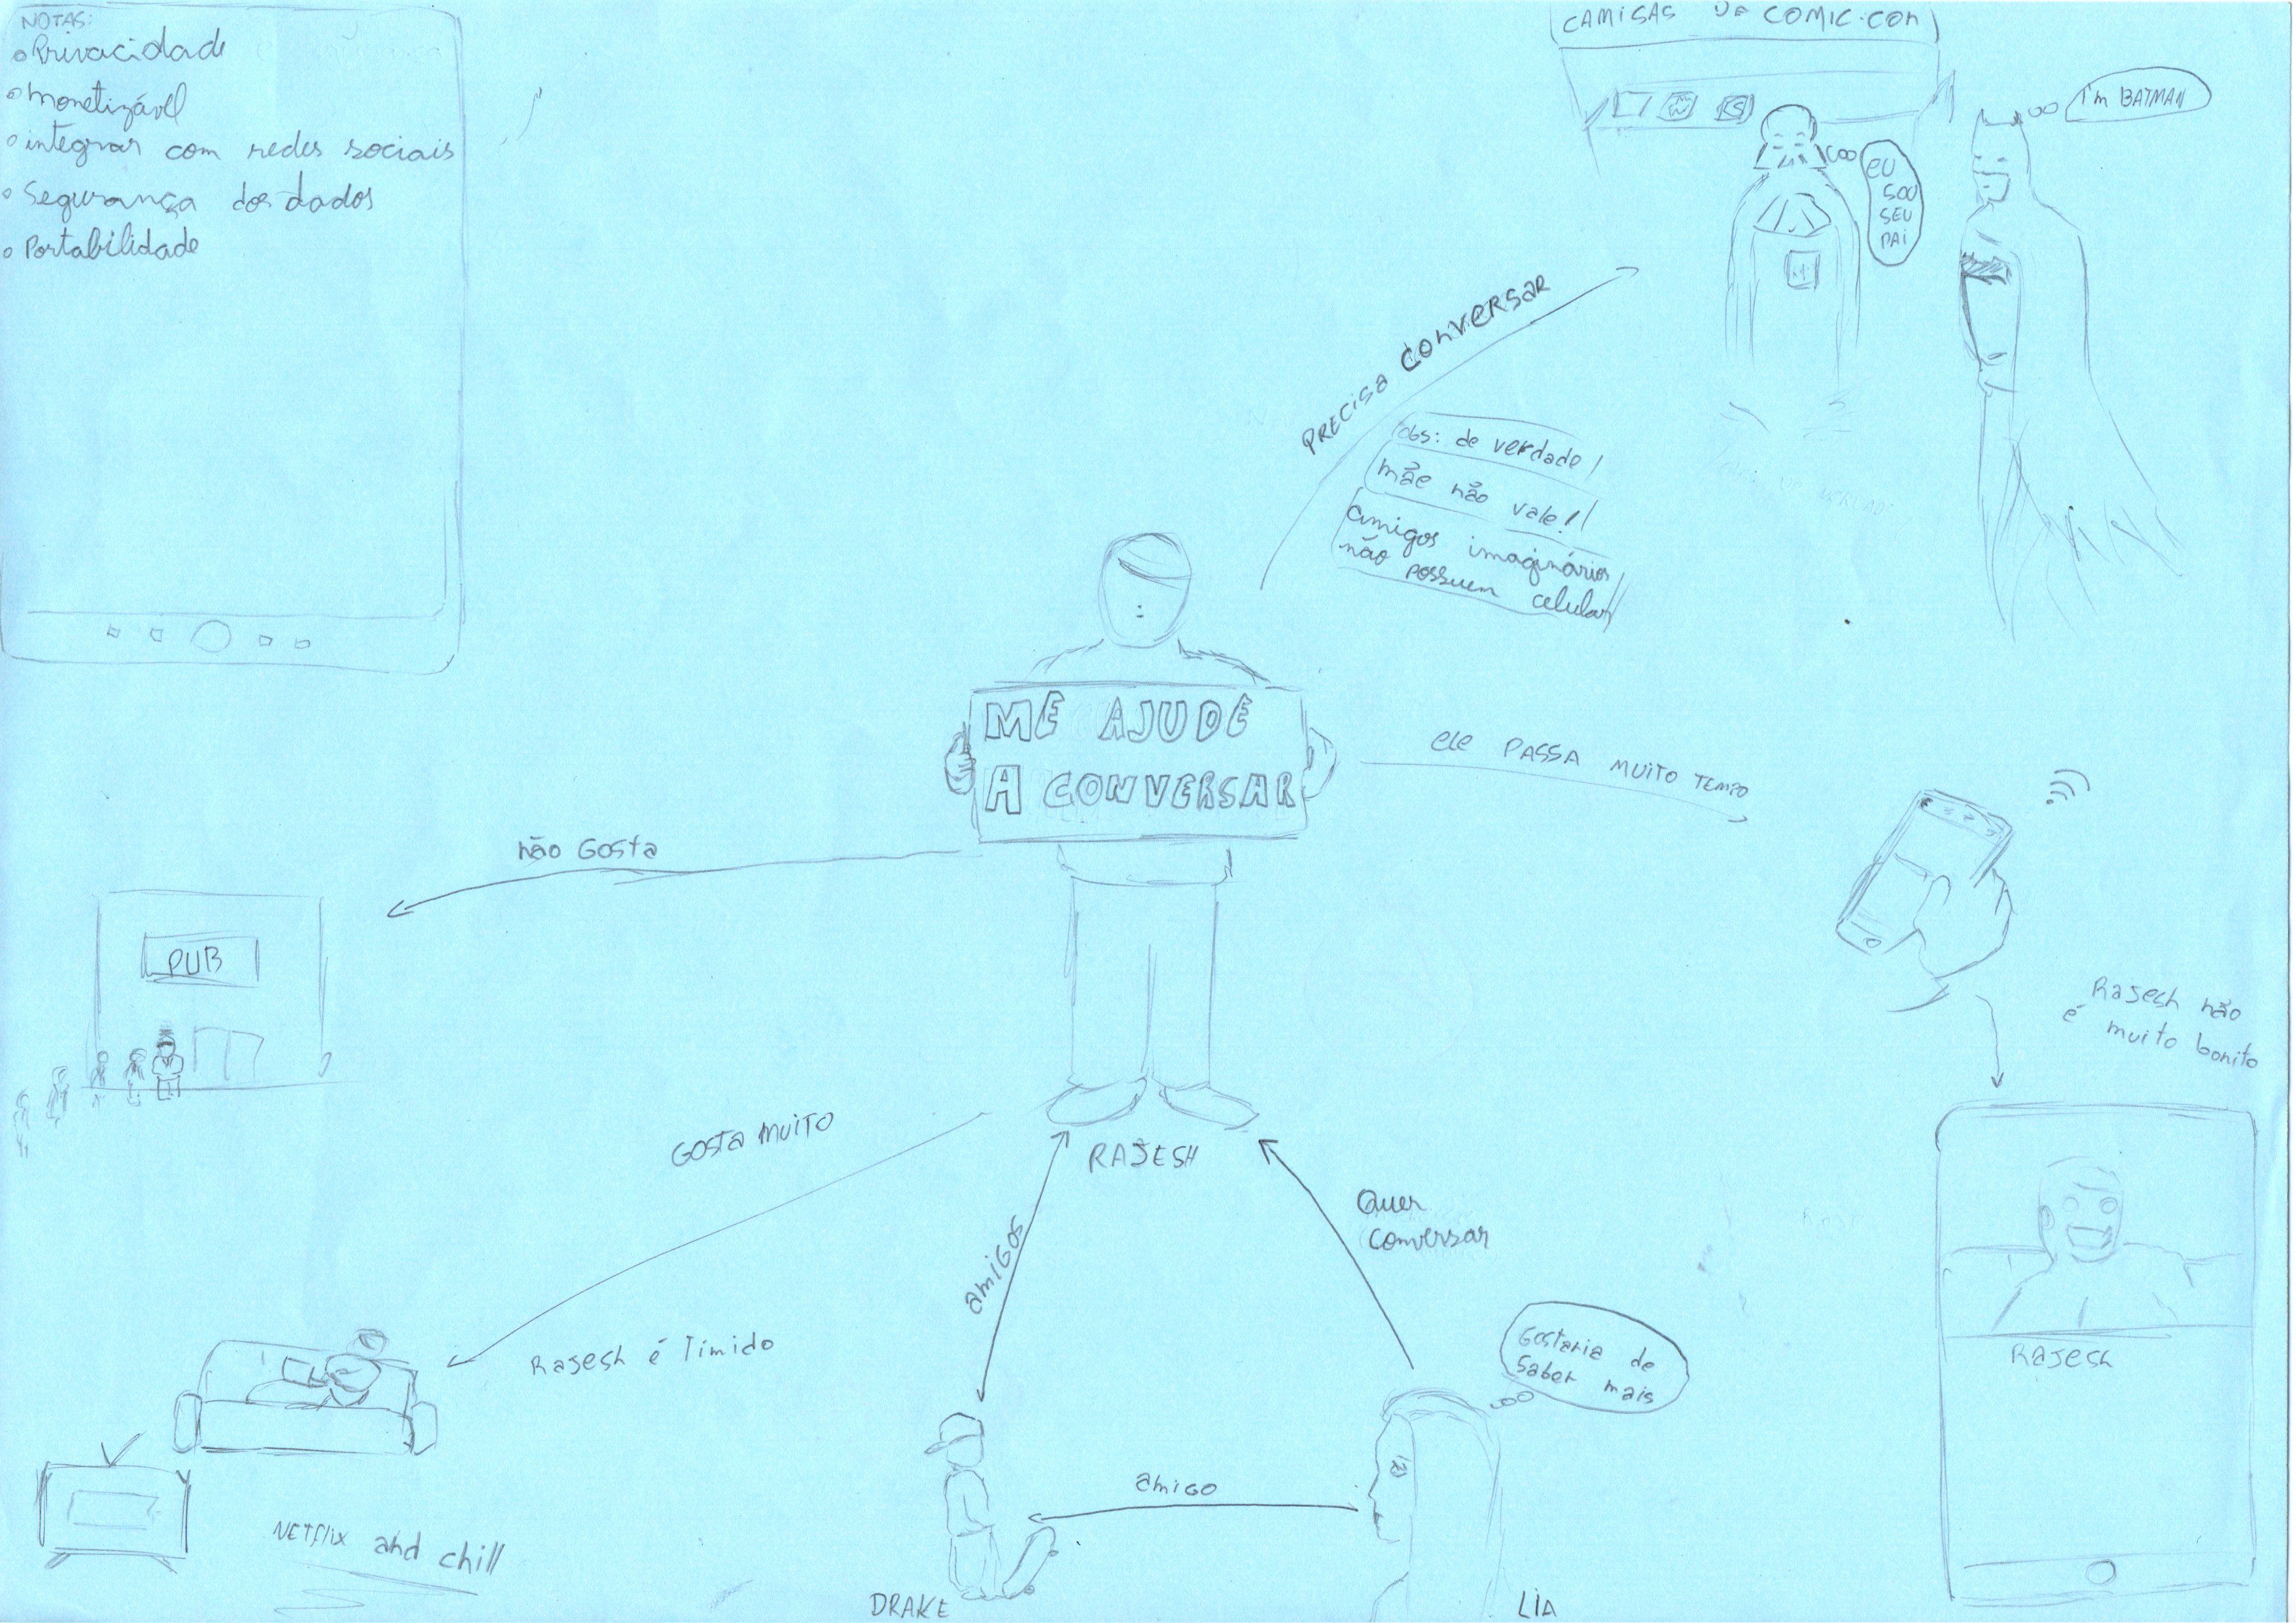 NOTAS:
Privacidade
Monetizável
integrar com redes sociais
Segurança dos dados
Portabilidade
CAMISAS DE COMIC-CON
I'm BATMAN
EU
SOU
SEU
PAI
PRECISA CONVERSAR
obs: de verdade!
mãe não vale!
amigos imaginários
não possuem celular
ME AJUDE
A CONVERSAR
ele PASSA MUITO TEMPO
não GOSTA
PUB
Rajesh não
é muito bonito
GOSTA MUITO
RAJESH
Quer
conversar
amigos
Rajesh é Tímido
Gostaria de
Saber mais
RAJESH
amigo
NETflix and chill
DRAKE
LIA